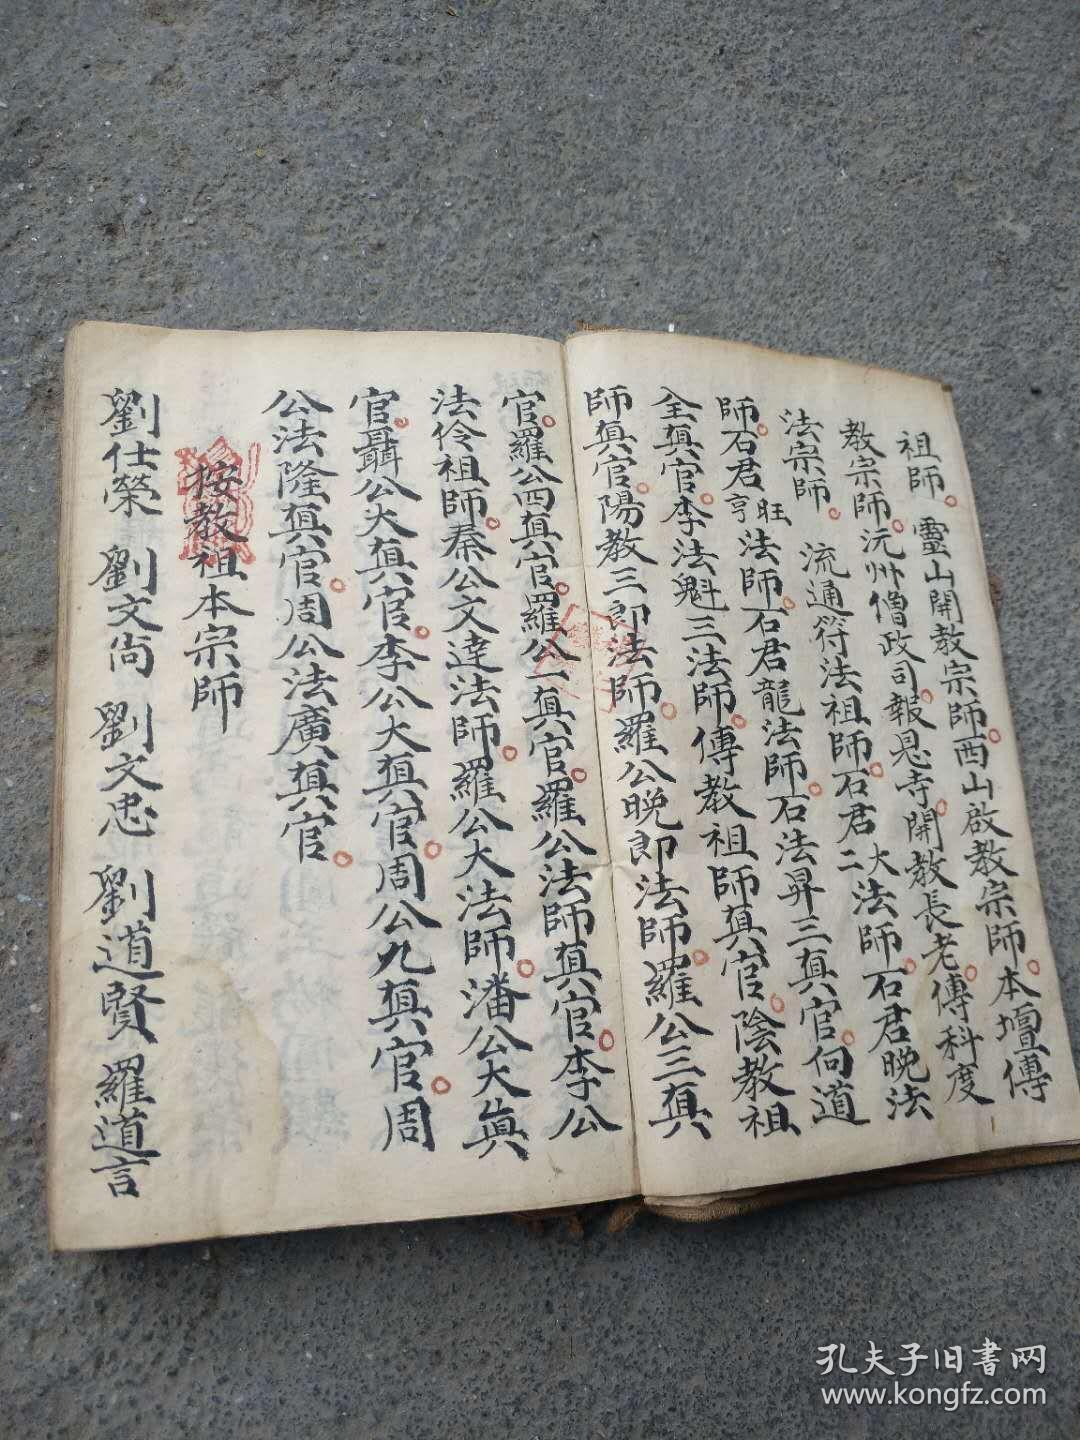 祖師。靈山開教宗師。西山啟教宗師。本壇傳
教宗師。沅州僧政司。報恩寺。開教長老。傳科度
法宗師。流通符法祖師。石君二大法師。石君晚法
師。石君亨旺法師。石君龍法師。石法昇三眞官。向道
全眞官。李法魁三法師。傳教祖師眞官。陰教祖
師眞官。陽教三郎法師。羅公晚郎法師。羅公三眞
官。羅公四眞官。羅公一眞官。羅公法師眞官。李公
法伶祖師。秦公文達法師。羅公大法師。潘公大眞
官。聶公大眞官。李公大眞官。周公九眞官。周
公法隆眞官。周公法廣眞官。
按教祖本宗師
劉仕榮 劉文尚 劉文忠 劉道賢 羅道言
孔夫子旧書网
www.kongfz.com